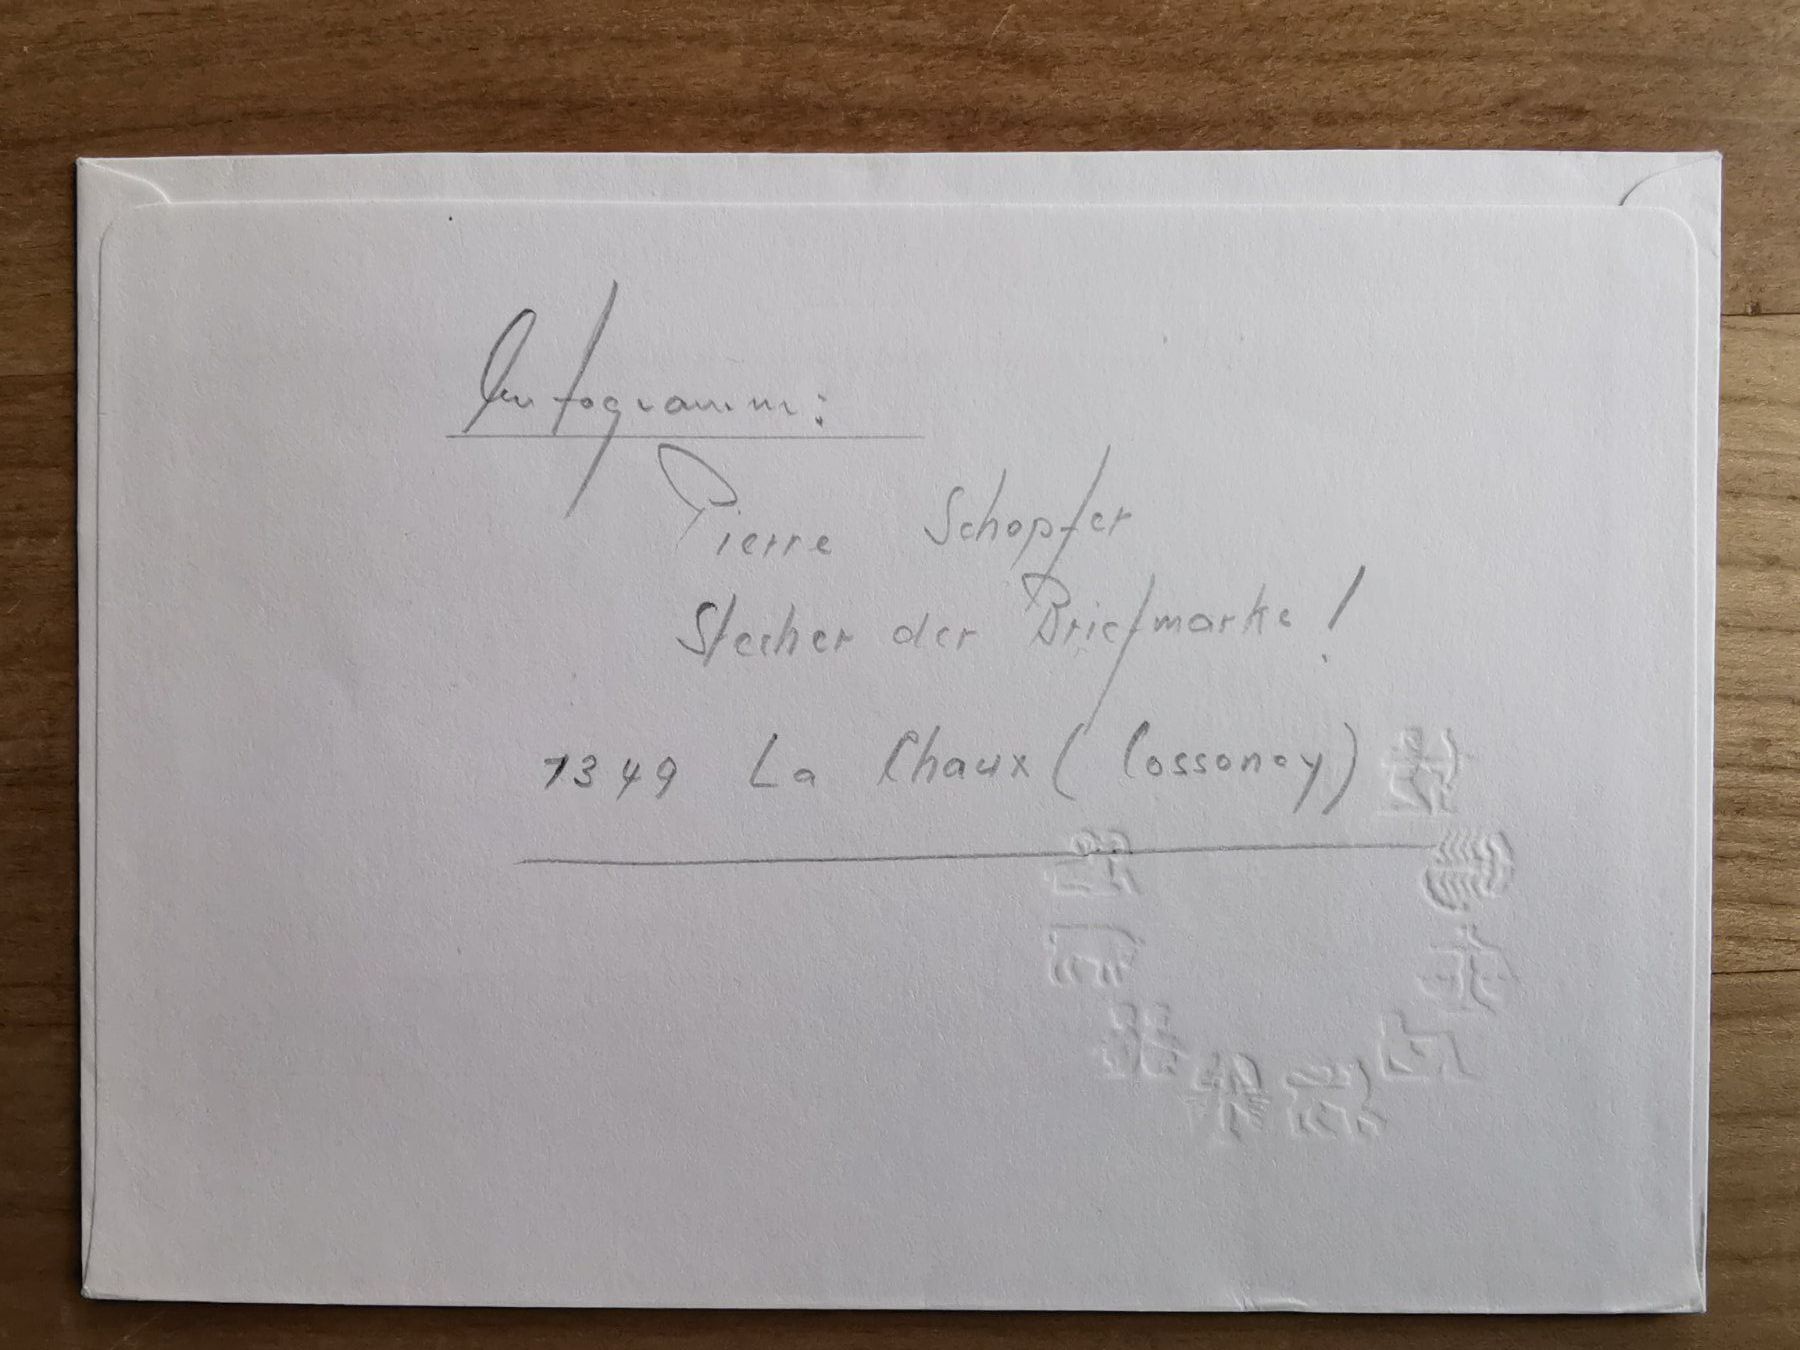 Autogramm:
Pierre Schopfer
Stecher der Briefmarke!
1349 La Chaux (Cossonay)